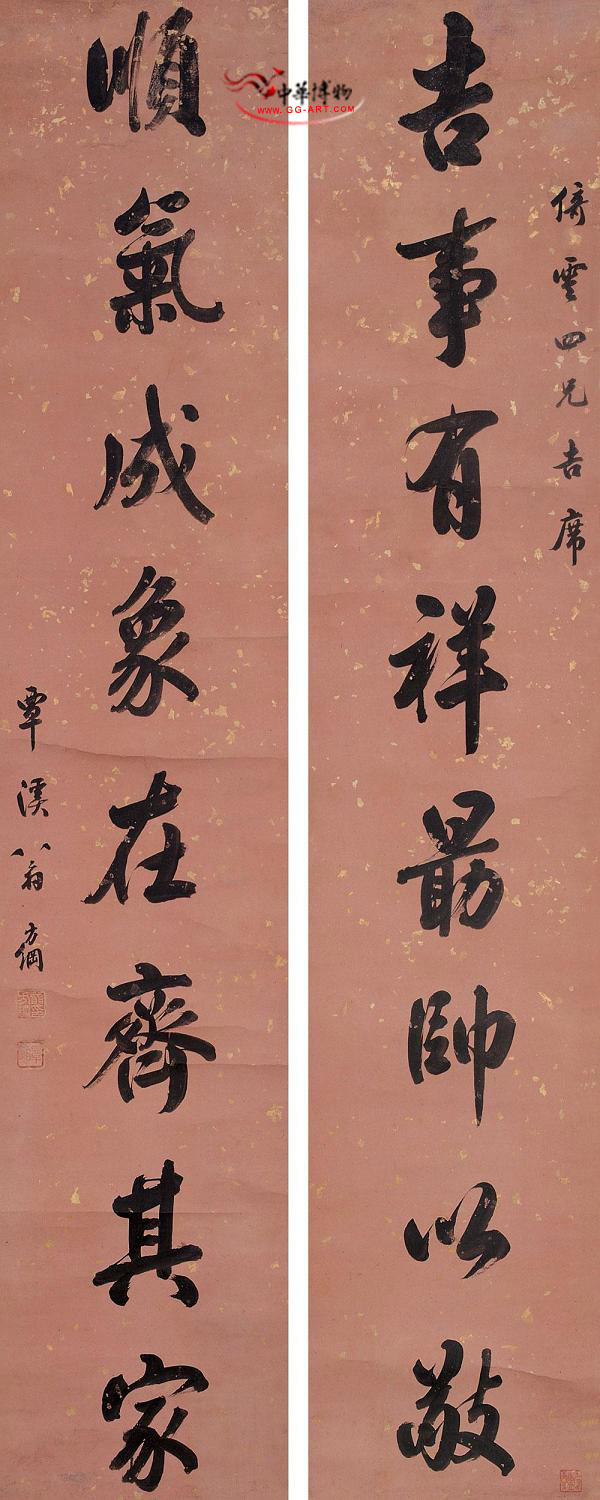 倚雲四兄吉席
吉事有祥勗帥以敬
順氣成象在齊其家
覃溪翁方綱
中華博物
WWW.GG-ART.COM